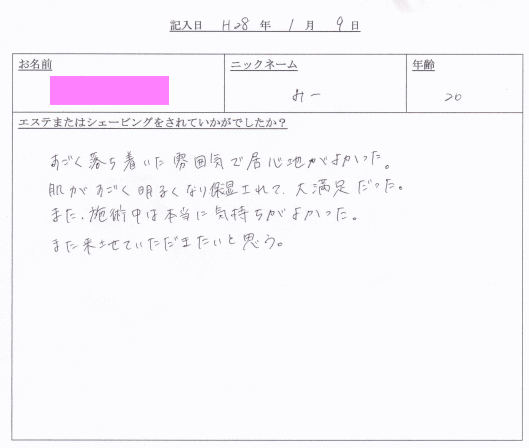 記入日 H28 年 1 月 9 日
お名前 ニックネーム 年齢
みー 20
エステまたはシェービングをされていかがでしたか？
すごく落ち着いた雰囲気で居心地がよかった。
肌がすごく明るくなり保湿されて、大満足だった。
また、施術中は本当に気持ちがよかった。
また来させていただきたいと思う。